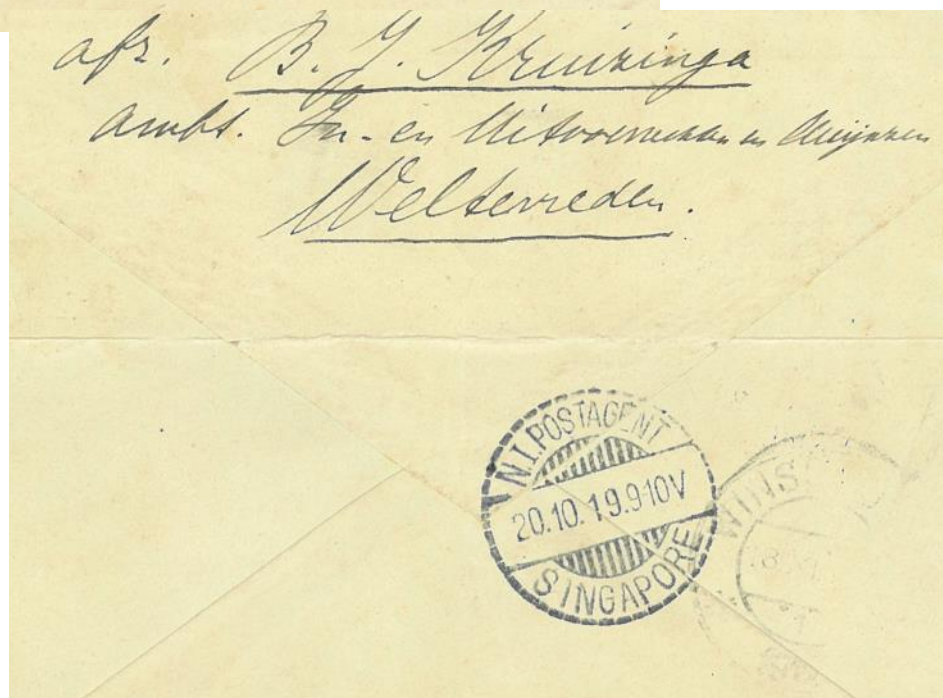 afz. B. J. Kruizinga
ambt. In- en Uitvoerrechten en Accijnzen
Weltevreden.
N.I. POSTAGENT
20.10.19.9-10V
SINGAPORE
WINS